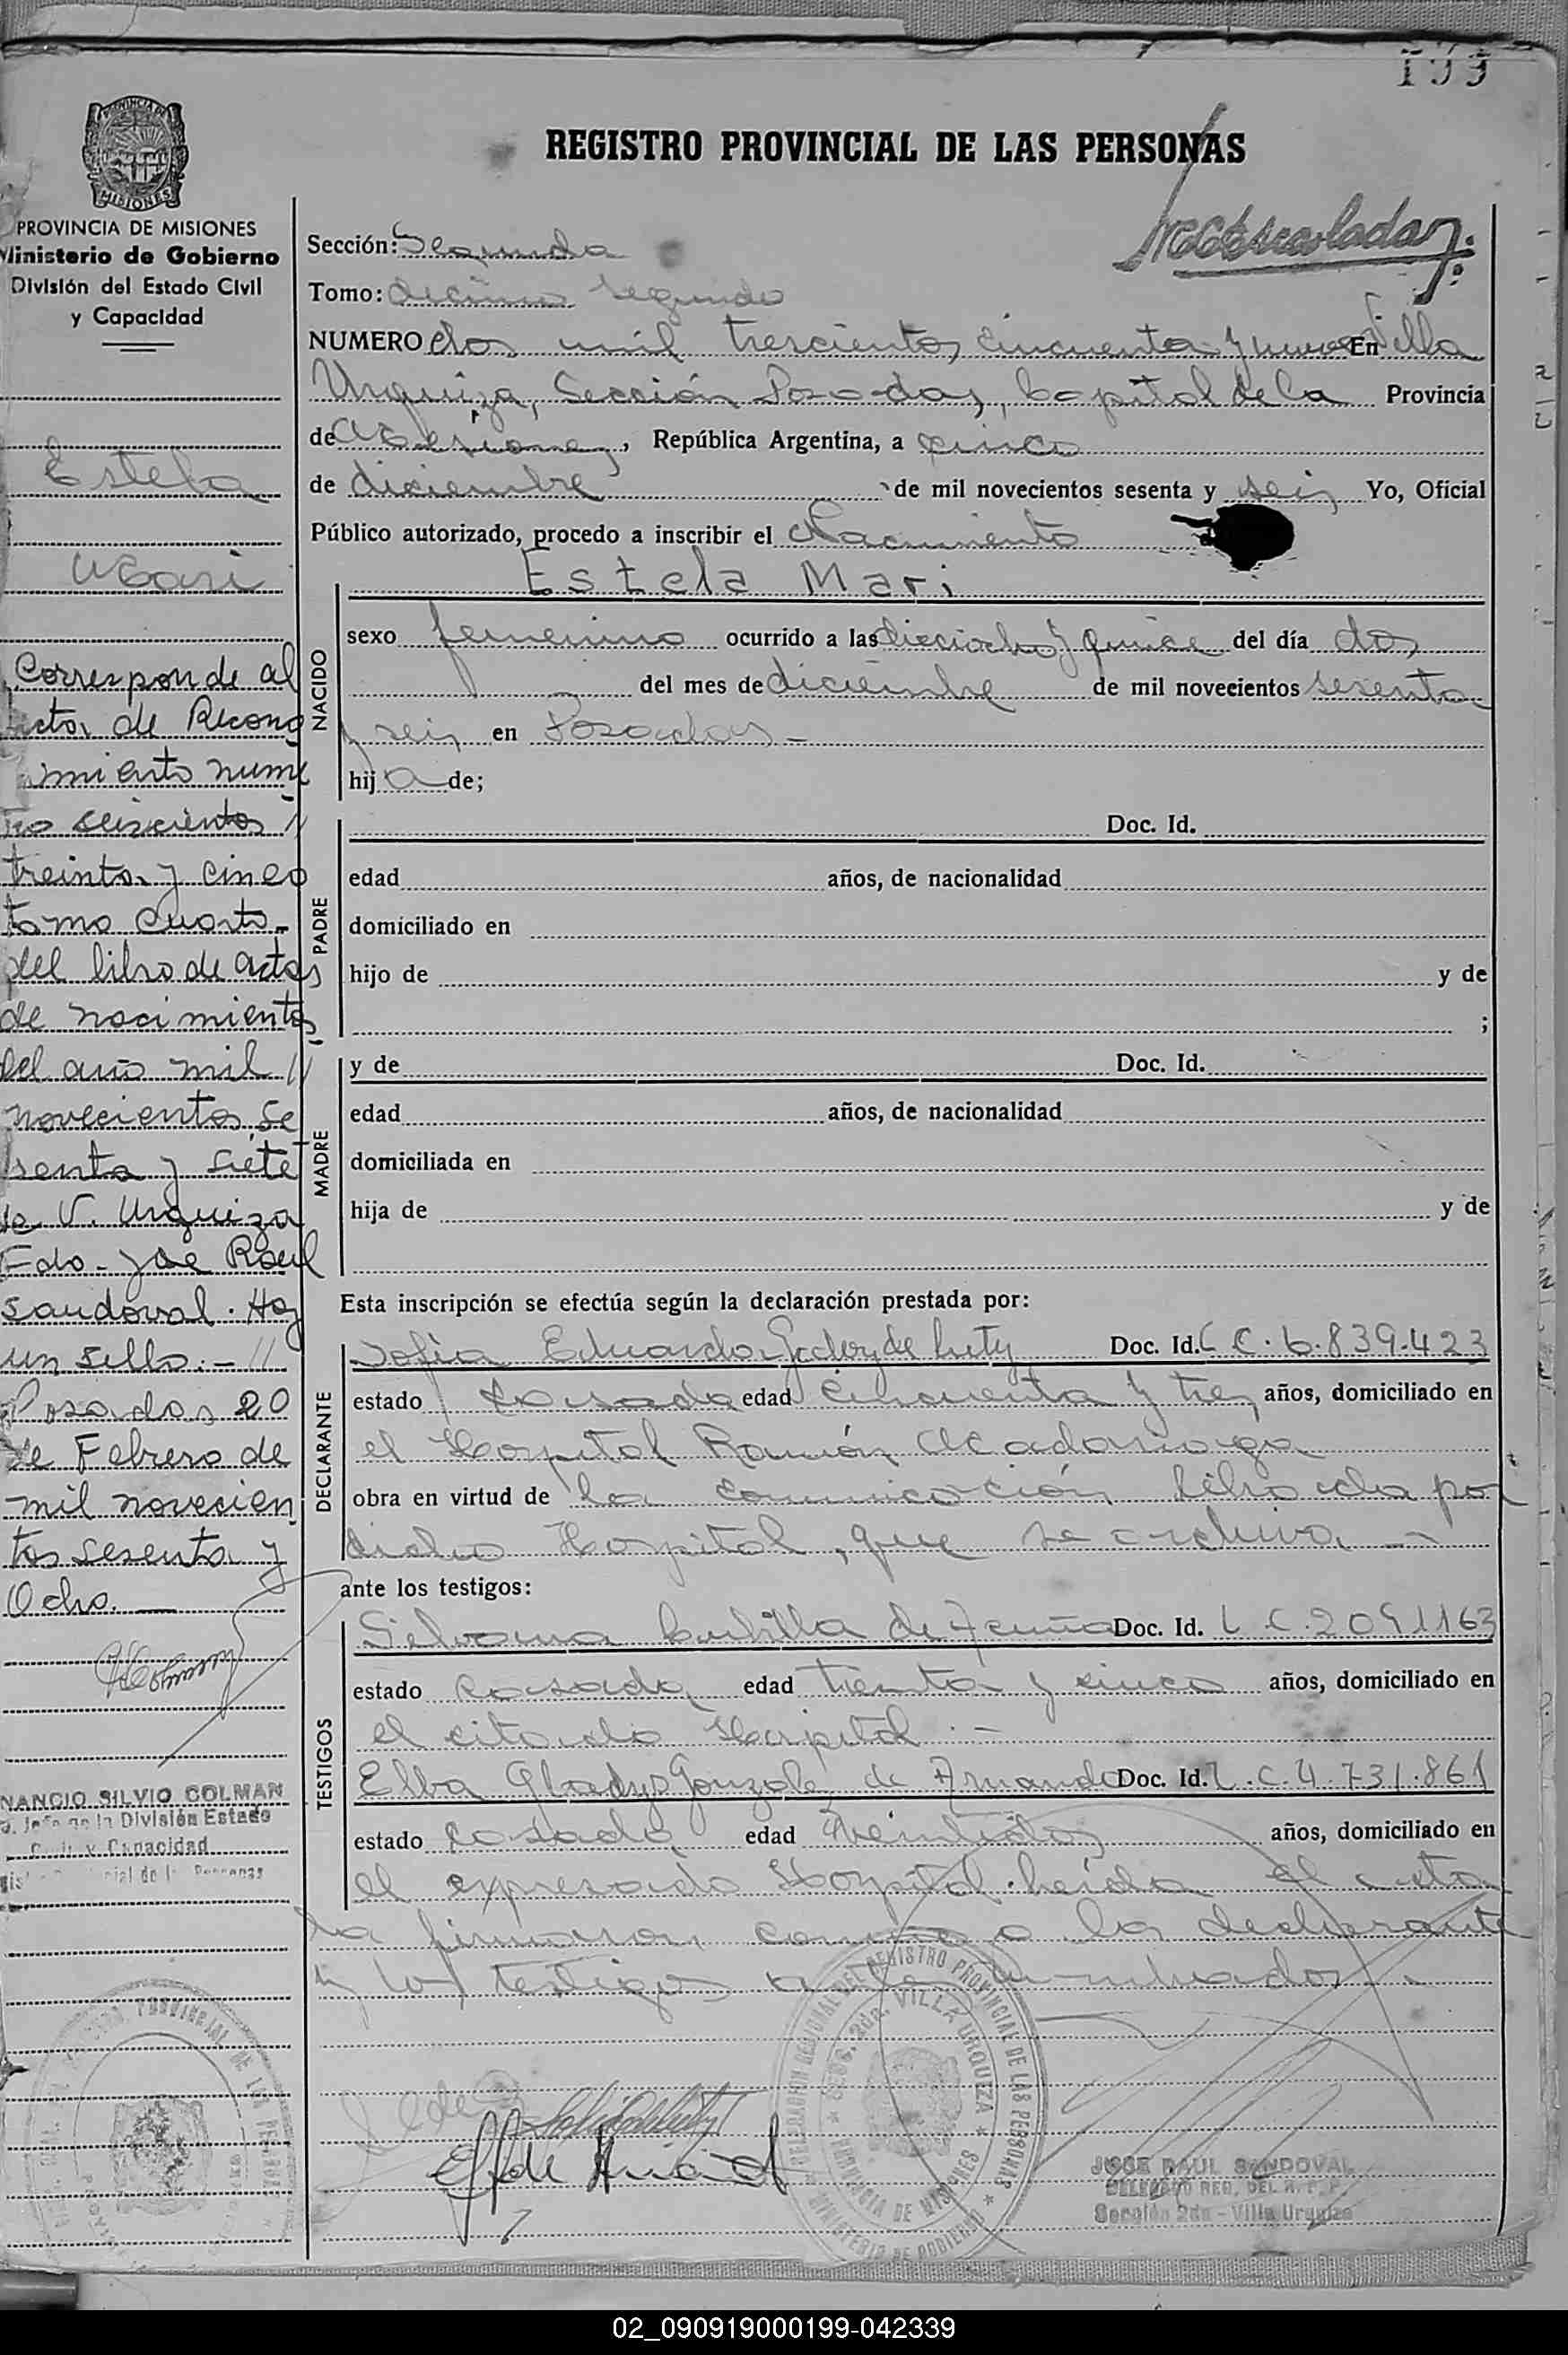 199
REGISTRO PROVINCIAL DE LAS PERSONAS
MISIONES
PROVINCIA DE MISIONES
Ministerio de Gobierno
División del Estado Civil
y Capacidad
Estela
Mari
Corresponde al
acta de Recono
cimiento núme
ro seiscientos //
treinta y cinco
tomo cuarto-
del libro de actas
de nacimientos
del año mil //
novecientos se
senta y siete
de V. Urquiza
Fdo. José Raúl
Sandoval. Hay
un sello.- //
Posadas 20
de Febrero de
mil novecien
tos sesenta y
Ocho.
NANCIO SILVIO COLMAN
Jefe de la División Estado
Civil y Capacidad
Sección: Segunda
Tomo: décimo segundo
NUMERO dos mil trescientos cincuenta y nueve En Villa
Urquiza, Sección Posadas, Capital de la Provincia
de Misiones, República Argentina, a cinco
de diciembre de mil novecientos sesenta y seis Yo, Oficial
Público autorizado, procedo a inscribir el Nacimiento
Estela Mari
NACIDO
sexo femenino ocurrido a las dieciocho y quince del día dos
del mes de diciembre de mil novecientos sesenta
y seis en Posadas -
hija de;
PADRE
Doc. Id.
edad años, de nacionalidad
domiciliado en
hijo de y de
;
MADRE
y de Doc. Id.
edad años, de nacionalidad
domiciliada en
hija de y de
Esta inscripción se efectúa según la declaración prestada por:
DECLARANTE
Sofia Eduarda Godoy de Doc. Id. L C. 6.839.423
estado casada edad cincuenta y tres años, domiciliado en
el Hospital Ramón Madariaga
obra en virtud de la comunicación librada por
dicho Hospital, que se archiva -
ante los testigos:
TESTIGOS
Silvana de Acuña Doc. Id. L.C. 2091163
estado casada edad treinta y cinco años, domiciliado en
el citado Hospital.-
Elba Gladys Gonzalez de Doc. Id. L.C. 4.731.861
estado casada edad veintidos años, domiciliado en
el expresado Hospital. leída el acta
la firman como a la declarante
y los testigos
DELEGACION REGIONAL DEL REGISTRO PROVINCIAL DE LAS PERSONAS
SECC. 2da. VILLA URQUIZA
PROVINCIA DE MISIONES
MINISTERIO DE GOBIERNO
JOSE RAUL SANDOVAL
DELEGADO REG. DEL R. P. P.
Sección 2da - Villa Urquiza
02_090919000199-042339